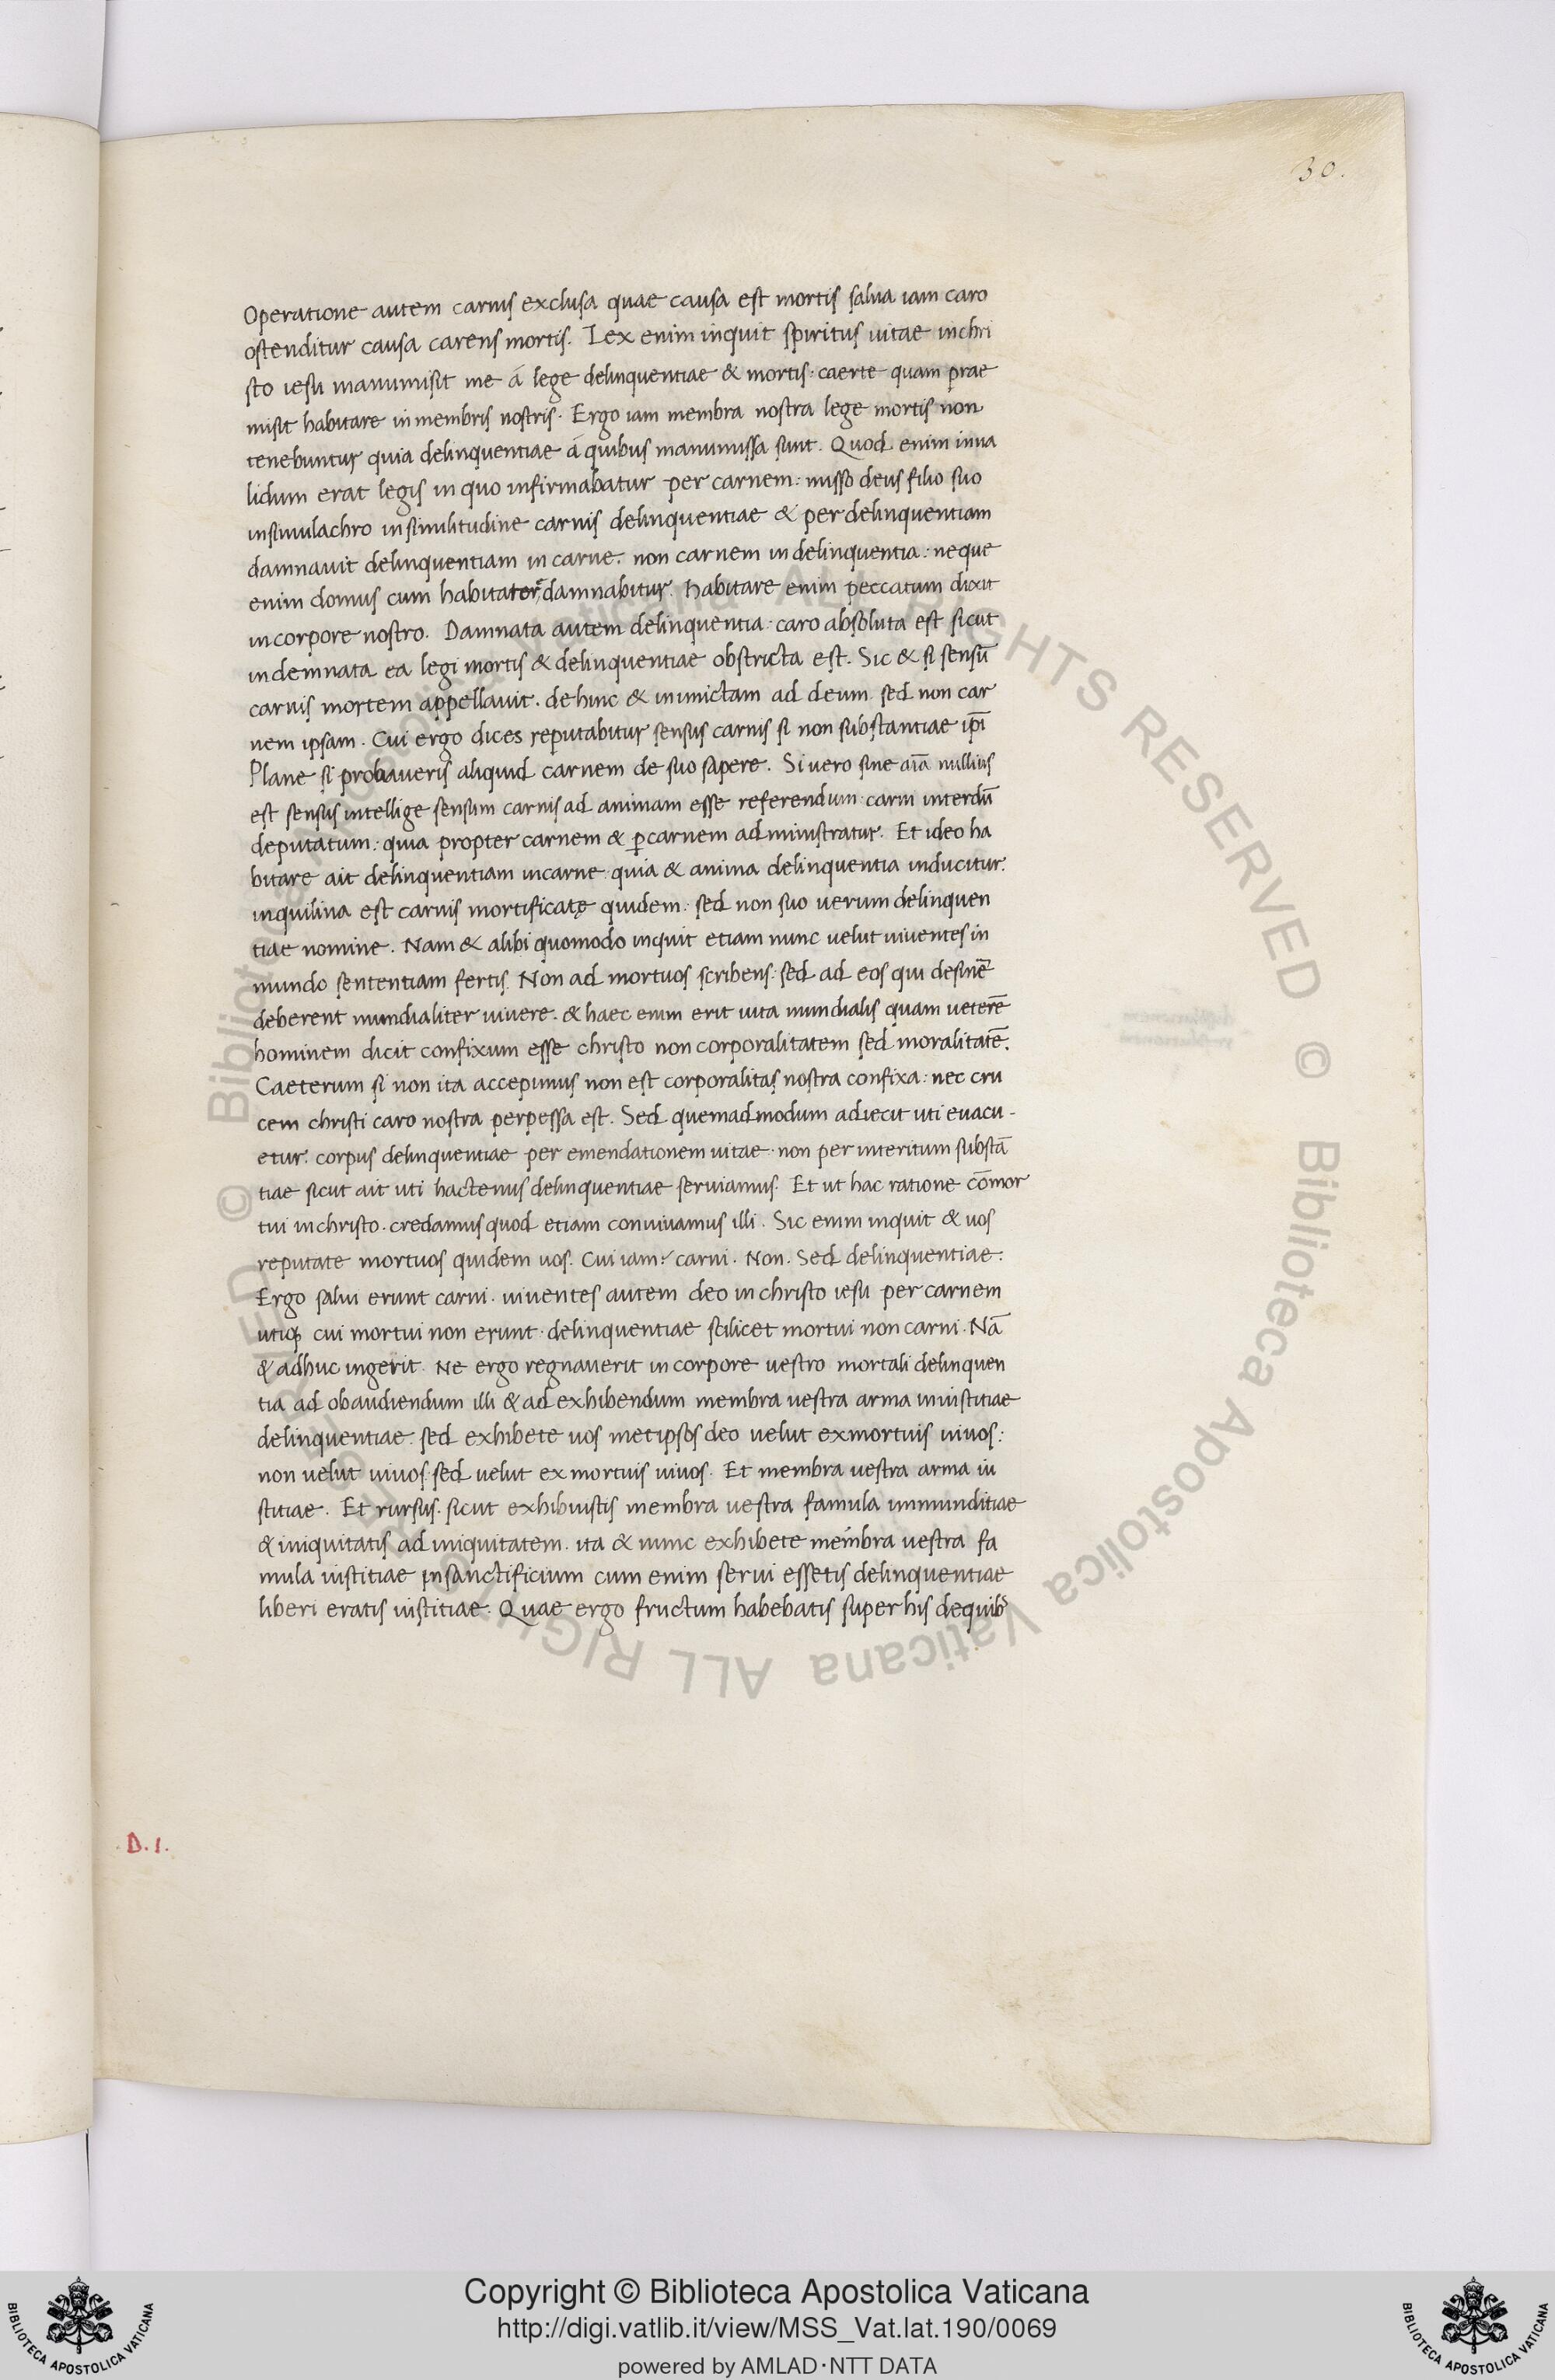 30.
Operatione autem carnis exclusa quae causa est mortis salua iam caro
ostenditur causa carens mortis. Lex enim inquit spiritus uitae in chri
sto iesu manumisit me á lege delinquentiae & mortis: caerte quam prae
misit habitare in membris nostris. Ergo iam membra nostra lege mortis non
tenebuntur quia delinquentiae á quibus manumissa sunt. Quod enim inua
lidum erat legis in quo infirmabatur per carnem: misso deus filio suo
insimulachro in similitudine carnis delinquentiae & per delinquentiam
damnauit delinquentiam in carne. non carnem in delinquentia: neque
enim domus cum habitatore damnabitur. habitare enim peccatum dixit
in corpore nostro. Damnata autem delinquentia: caro absoluta est sicut
indemnata ea legi mortis & delinquentiae obstricta est. Sic & si sensū
carnis mortem appellauit. dehinc & inimictam ad deum. sed non car
nem ipsam. Cui ergo dices reputabitur sensus carnis si non substantiae ipī
Plane si probaueris aliquid carnem de suo sapere. Si uero sine aīa nullius
est sensus intellige sensum carnis ad animam esse referendum carni interdū
deputatum: quia propter carnem & ꝑ carnem administratur. Et ideo ha
bitare ait delinquentiam in carne quia & anima delinquentia inducitur.
inquilina est carnis mortificatę quidem: sed non suo uerum delinquen
tiae nomine. Nam & alibi quomodo inquit etiam nunc uelut uiuentes in
mundo sententiam fertis. Non ad mortuos scribens: sed ad eos qui desinē
deberent mundialiter uiuere. & haec enim erit uita mundialis quam ueterē
hominem dicit confixum esse christo non corporalitatem sed moralitatē.
Caeterum si non ita accepimus non est corporalitas nostra confixa: nec cru
cem christi caro nostra perpessa est. Sed quemadmodum adiecit uti euacu-
etur. corpus delinquentiae per emendationem uitae. non per interitum substā
tiae sicut ait uti hactenus delinquentiae seruiamus. Et ut hac ratione cōmor
tui in christo. credamus quod etiam conuiuamus illi. Sic enim inquit & uos
reputate mortuos quidem uos. Cui iam? carni. Non. Sed delinquentiae:
Ergo salui erunt carni. uiuentes autem deo in christo iesu per carnem
utiqꝫ cui mortui non erunt. delinquentiae scilicet mortui non carni. Nā
& adhuc ingerit. Ne ergo regnauerit in corpore uestro mortali delinquen
tia ad obaudiendum illi & ad exhibendum membra uestra arma iniustitiae
delinquentiae. sed exhibete uos metipsos deo uelut ex mortuis uiuos:
non uelut uiuos. sed uelut ex mortuis uiuos. Et membra uestra arma iu
stitiae. Et rursus. sicut exhibuistis membra uestra famula inmunditiae
& iniquitatis ad iniquitatem. ita & nunc exhibete membra uestra fa
mula iustitiae in sanctificium cum enim serui essetis delinquentiae
liberi eratis iustitiae: Quae ergo fructum habebatis super his de quibꝰ
.D.1.
© Biblioteca Apostolica Vaticana ALL RIGHTS RESERVED © Biblioteca Apostolica Vaticana ALL RIGHTS RESERVED
Copyright © Biblioteca Apostolica Vaticana
http://digi.vatlib.it/view/MSS_Vat.lat.190/0069
powered by AMLAD·NTT DATA
BIBLIOTECA APOSTOLICA VATICANA
BIBLIOTECA APOSTOLICA VATICANA